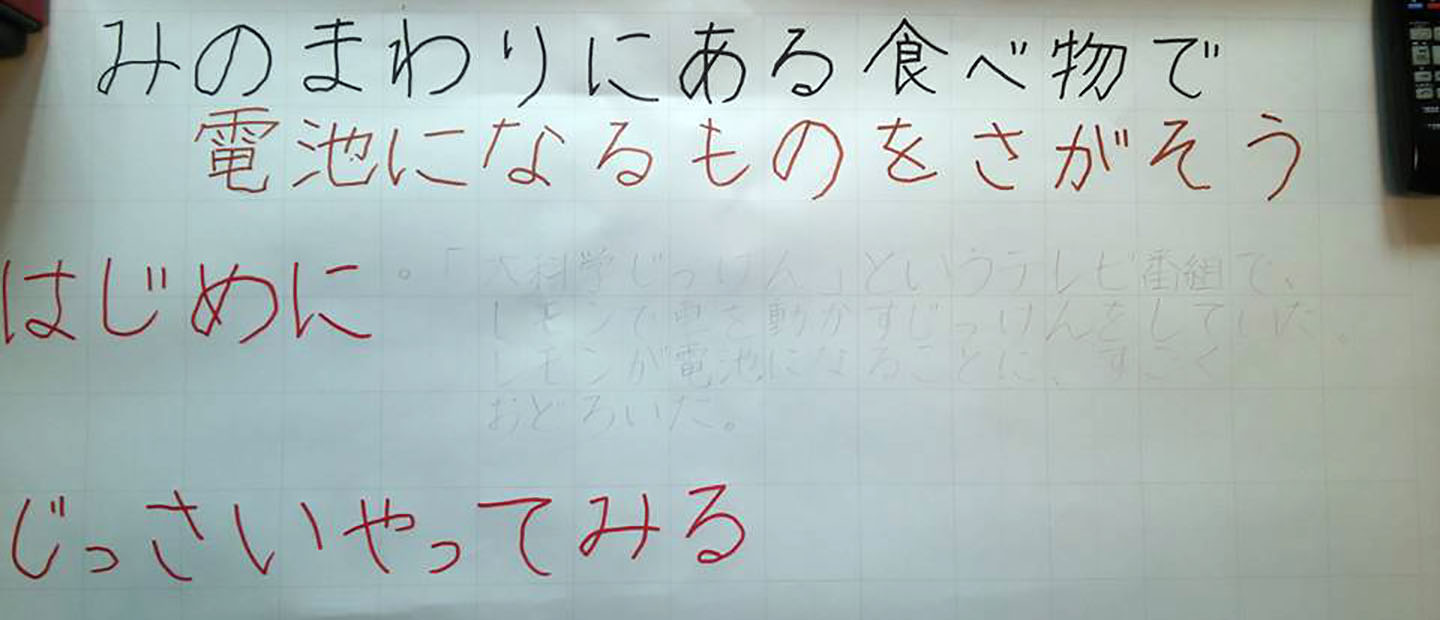 みのまわりにある食べ物で
電池になるものをさがそう
はじめに
。「大科学じっけん」というテレビ番組で、
レモンで車を動かすじっけんをしていた。
レモンが電池になることに、すごく
おどろいた。
じっさいやってみる